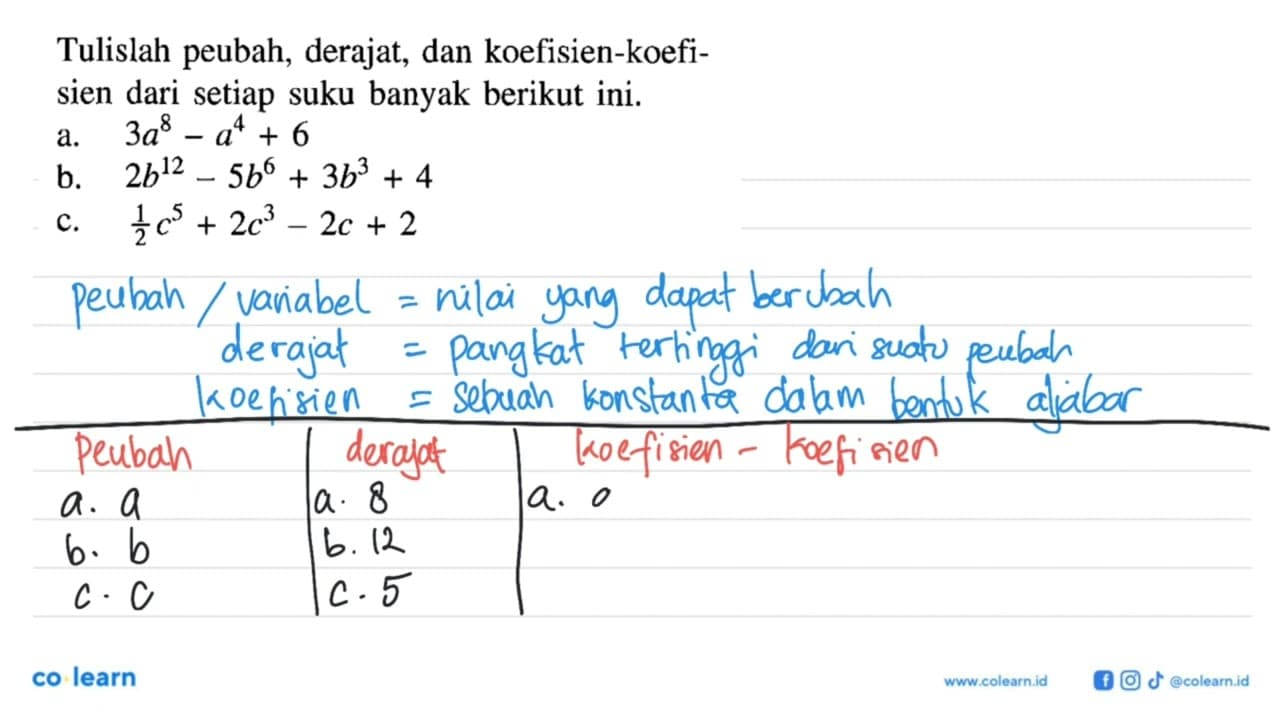 Tulislah peubah, derajat, dan koefisien-koefi-
sien dari setiap suku banyak berikut ini.
a. 3a⁸ – a⁴ + 6
b. 2b¹² – 5b⁶ + 3b³ + 4
c. ½c⁵ + 2c³ – 2c + 2
Peubah / variabel = nilai yang dapat berubah
derajat = pangkat tertinggi dari suatu peubah
koefisien = sebuah konstanta dalam bentuk aljabar
Peubah derajat koefisien - koefisien
a. a a. 8 a. o
b. b b. 12
c. c c. 5
co learn www.colearn.id @colearn.id